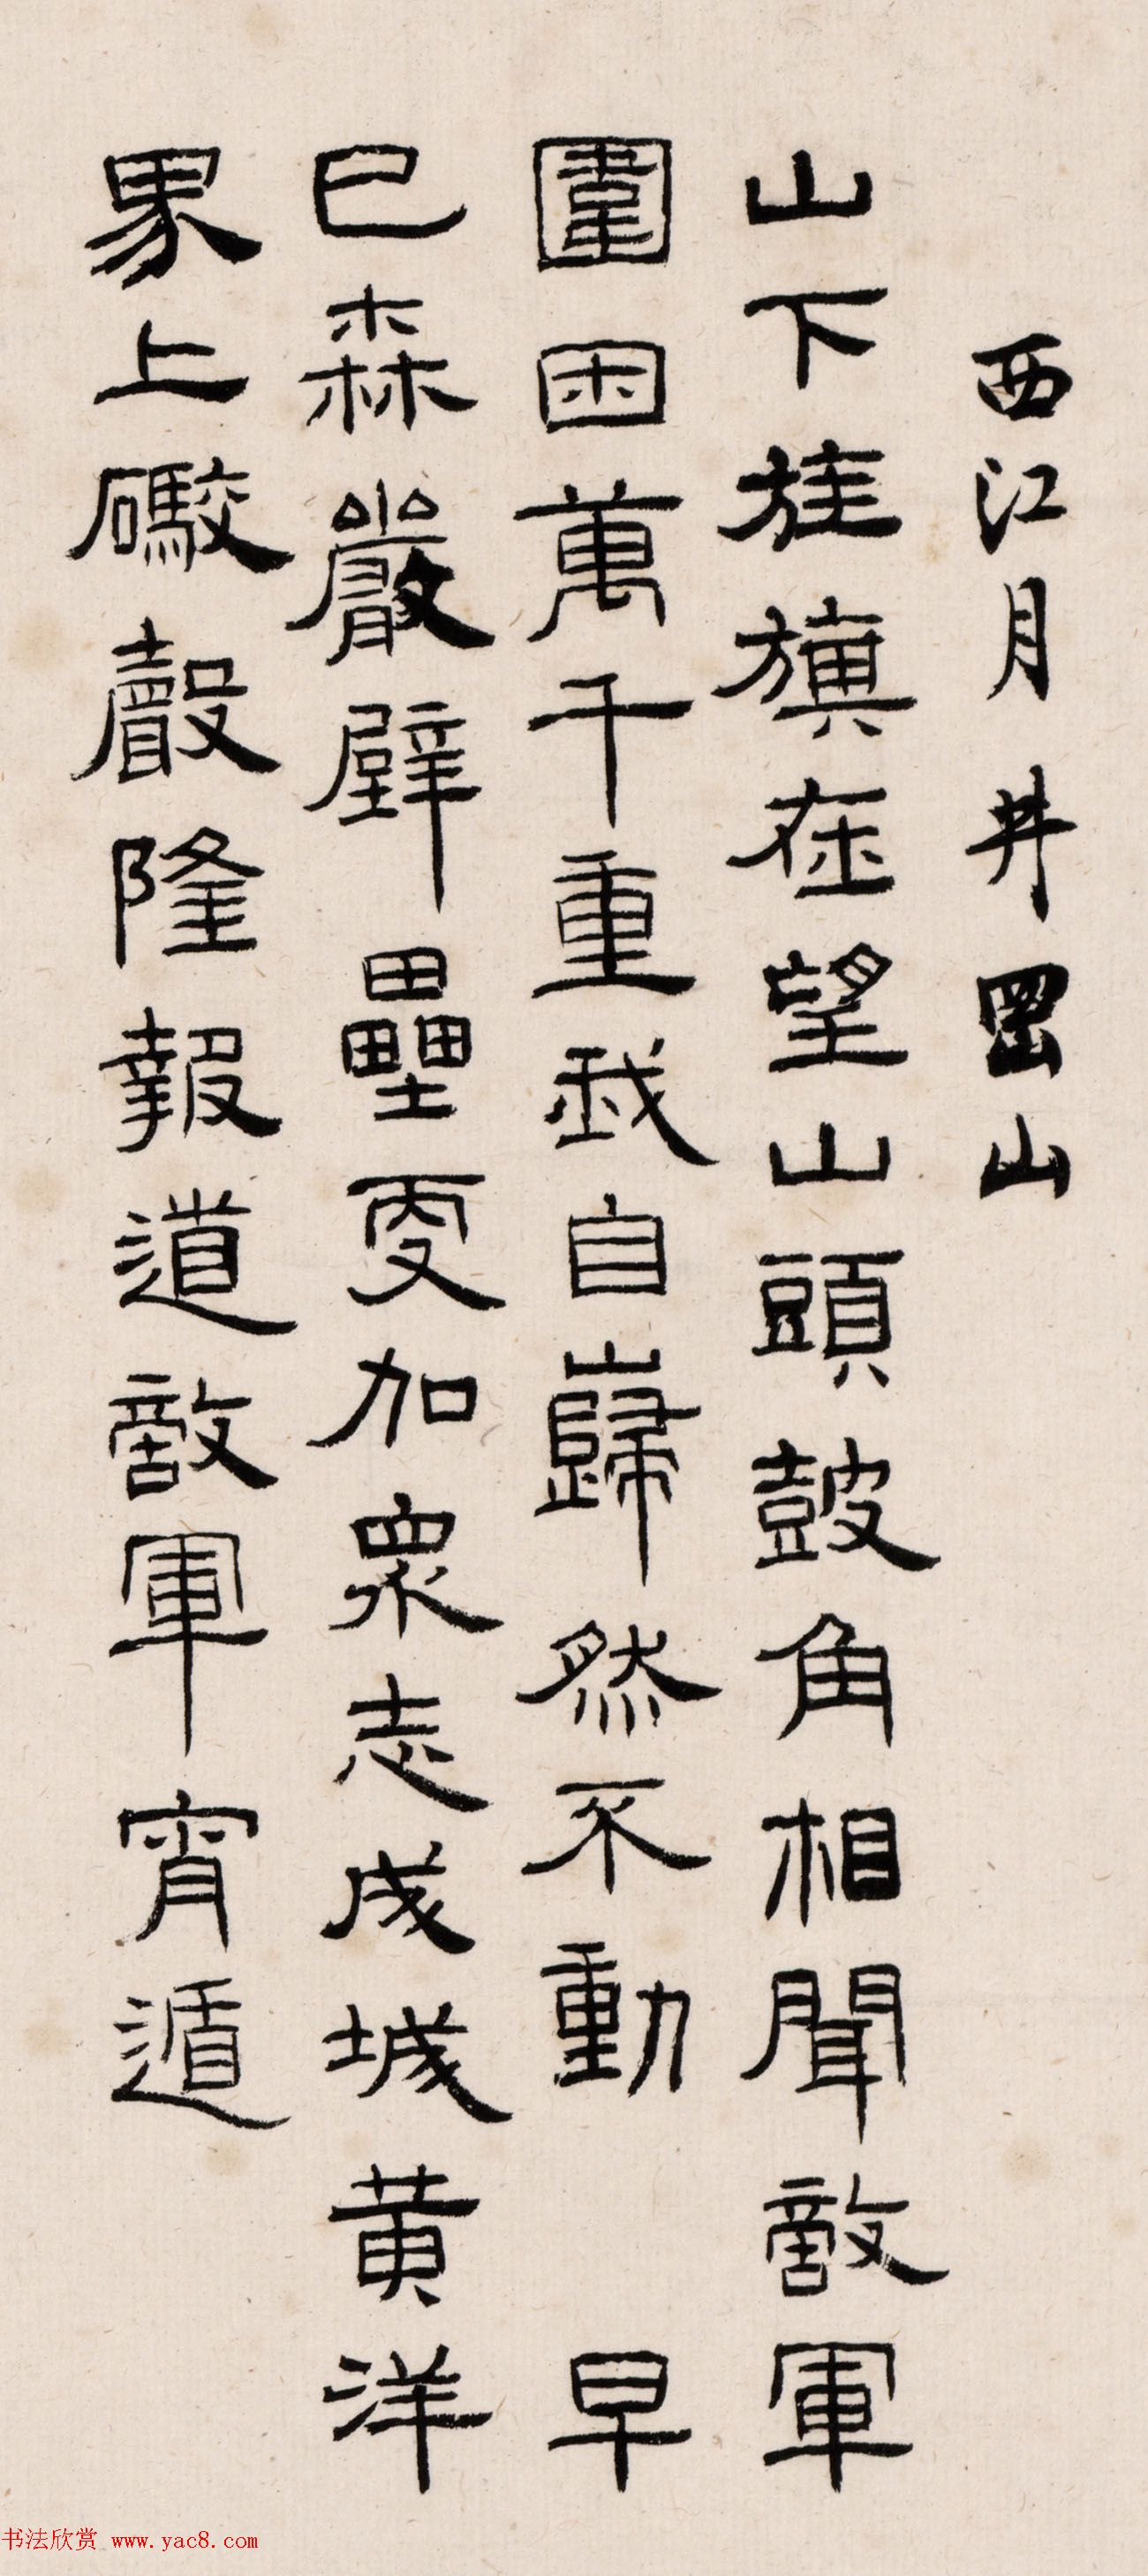 西江月 井岡山
山下旌旗在望山頭鼓角相聞敵軍
圍困萬千重我自巋然不動 早
已森嚴壁壘更加眾志成城黄洋
界上礮聲隆報道敵軍宵遁
书法欣赏 www.yac8.com